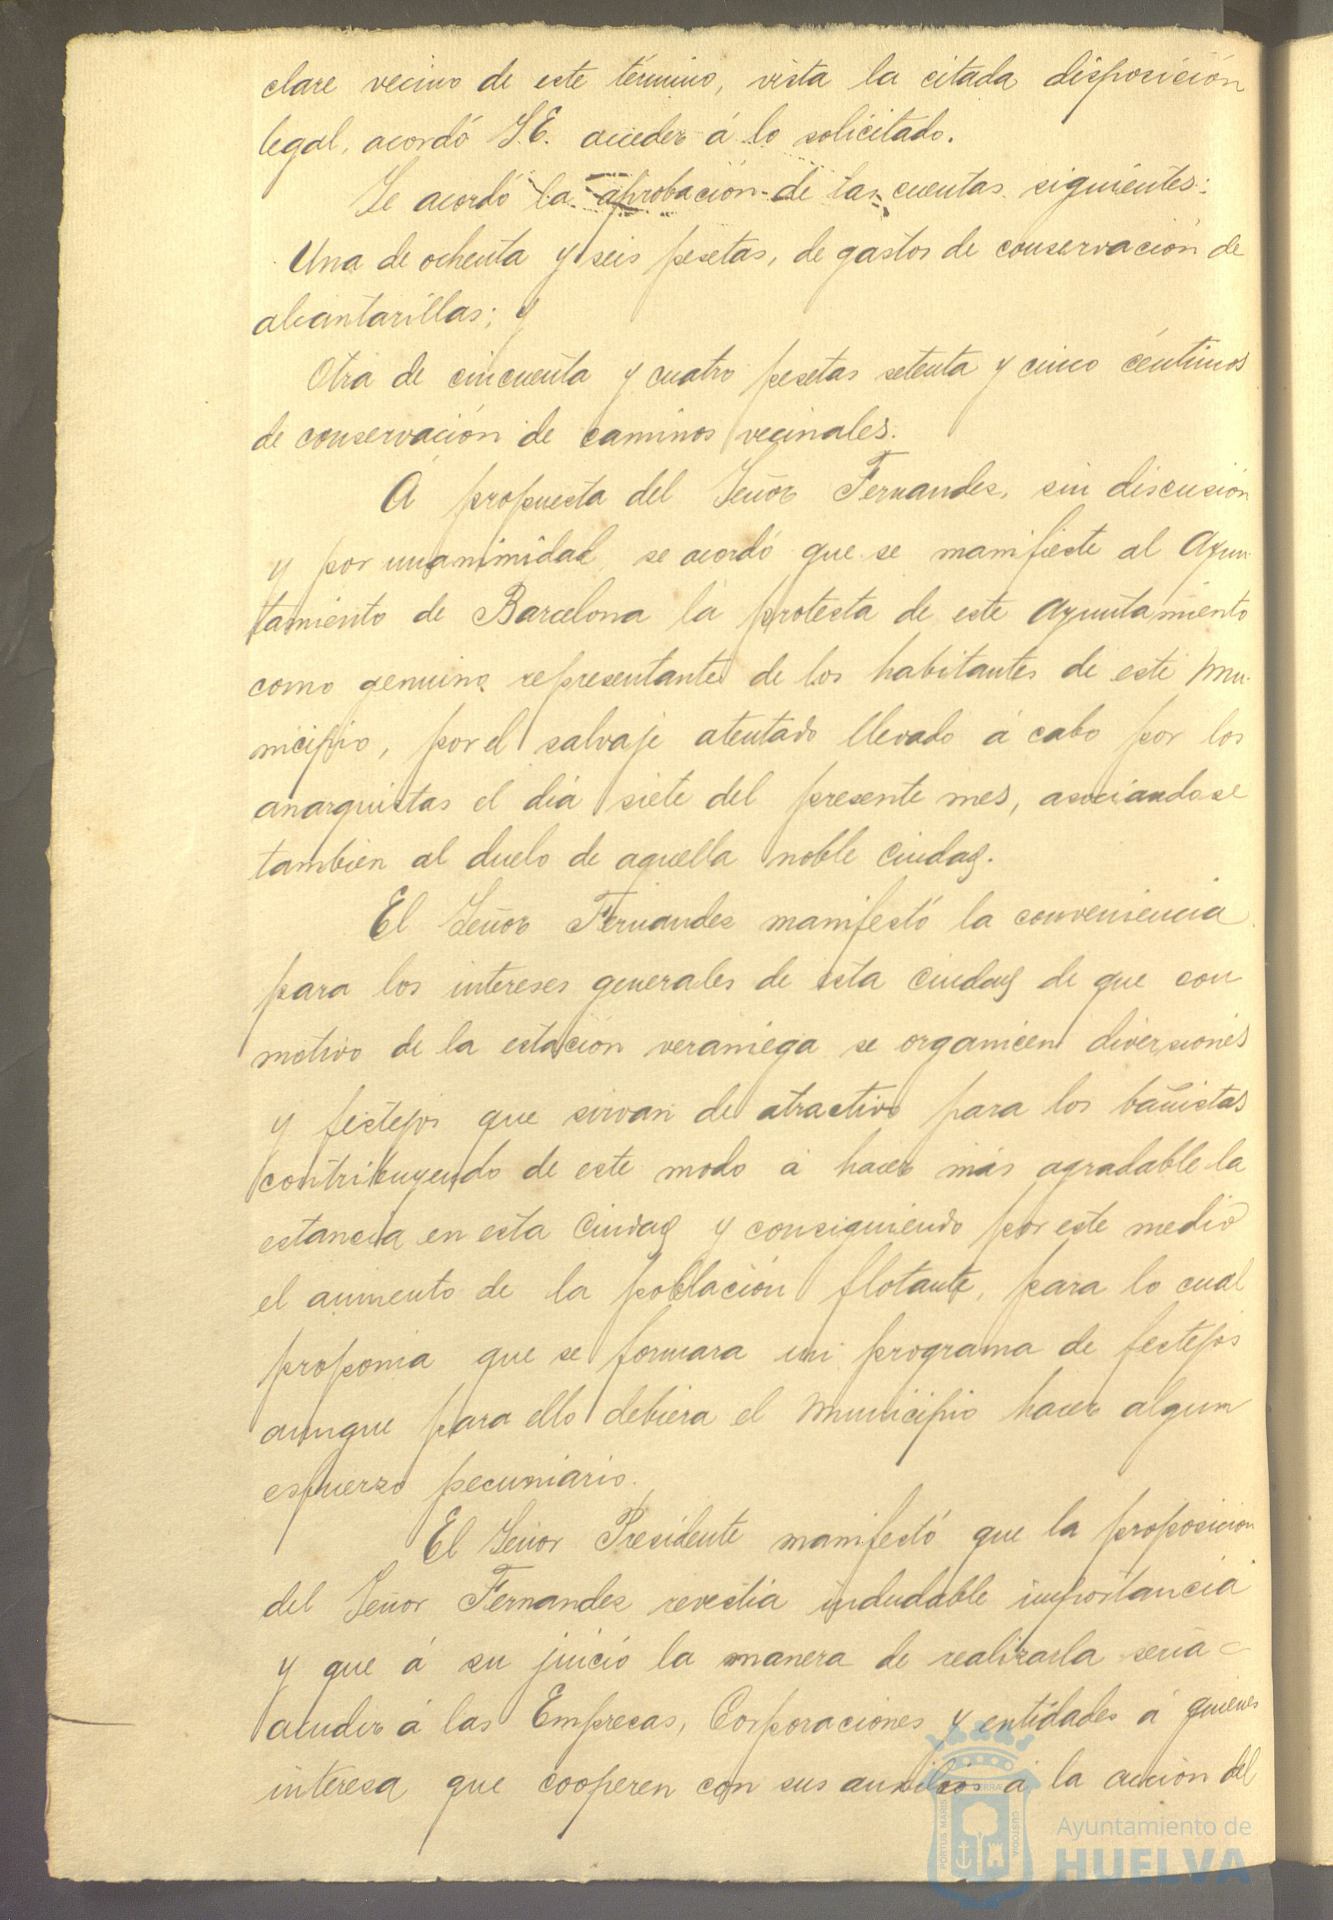 clare vecino de este término, vista la citada disposición
legal, acordó S.E. acceder á lo solicitado.
Se acordó la aprobación de las cuentas siguientes:
Una de ochenta y seis pesetas, de gastos de conservación de
alcantarillas; y
Otra de cincuenta y cuatro pesetas setenta y cinco céntimos
de conservación de caminos vecinales.
A propuesta del Señor Fernandez, sin discusión
y por unanimidad, se acordó que se manifieste al Ayun-
tamiento de Barcelona la protesta de este Ayuntamiento
como genuino representante de los habitantes de este Mu-
nicipio, por el salvaje atentado llevado á cabo por los
anarquistas el día siete del presente mes, asociandose
también al duelo de aquella noble Ciudad.
El Señor Fernandez manifestó la conveniencia
para los intereses generales de esta Ciudad de que con
motivo de la estación veraniega se organicen diversiones
y festejos que sirvan de atractivo para los bañistas
contribuyendo de este modo á hacer más agradable la
estancia en esta Ciudad y consiguiendo por este medio
el aumento de la población flotante, para lo cual
proponia que se formara un programa de festejos
aunque para ello debiera el Municipio hacer algun
esfuerzo pecuniario.
El Señor Presidente manifestó que la proposicion
del Señor Fernandez revestia indudable importancia
y que á su juicio la manera de realizarla seria
acudir á las Empresas, Corporaciones y entidades á quienes
interesa que cooperen con sus auxilios á la acción del
PORTUS MARIS
TERRAE
CUSTODIA
Ayuntamiento de
HUELVA